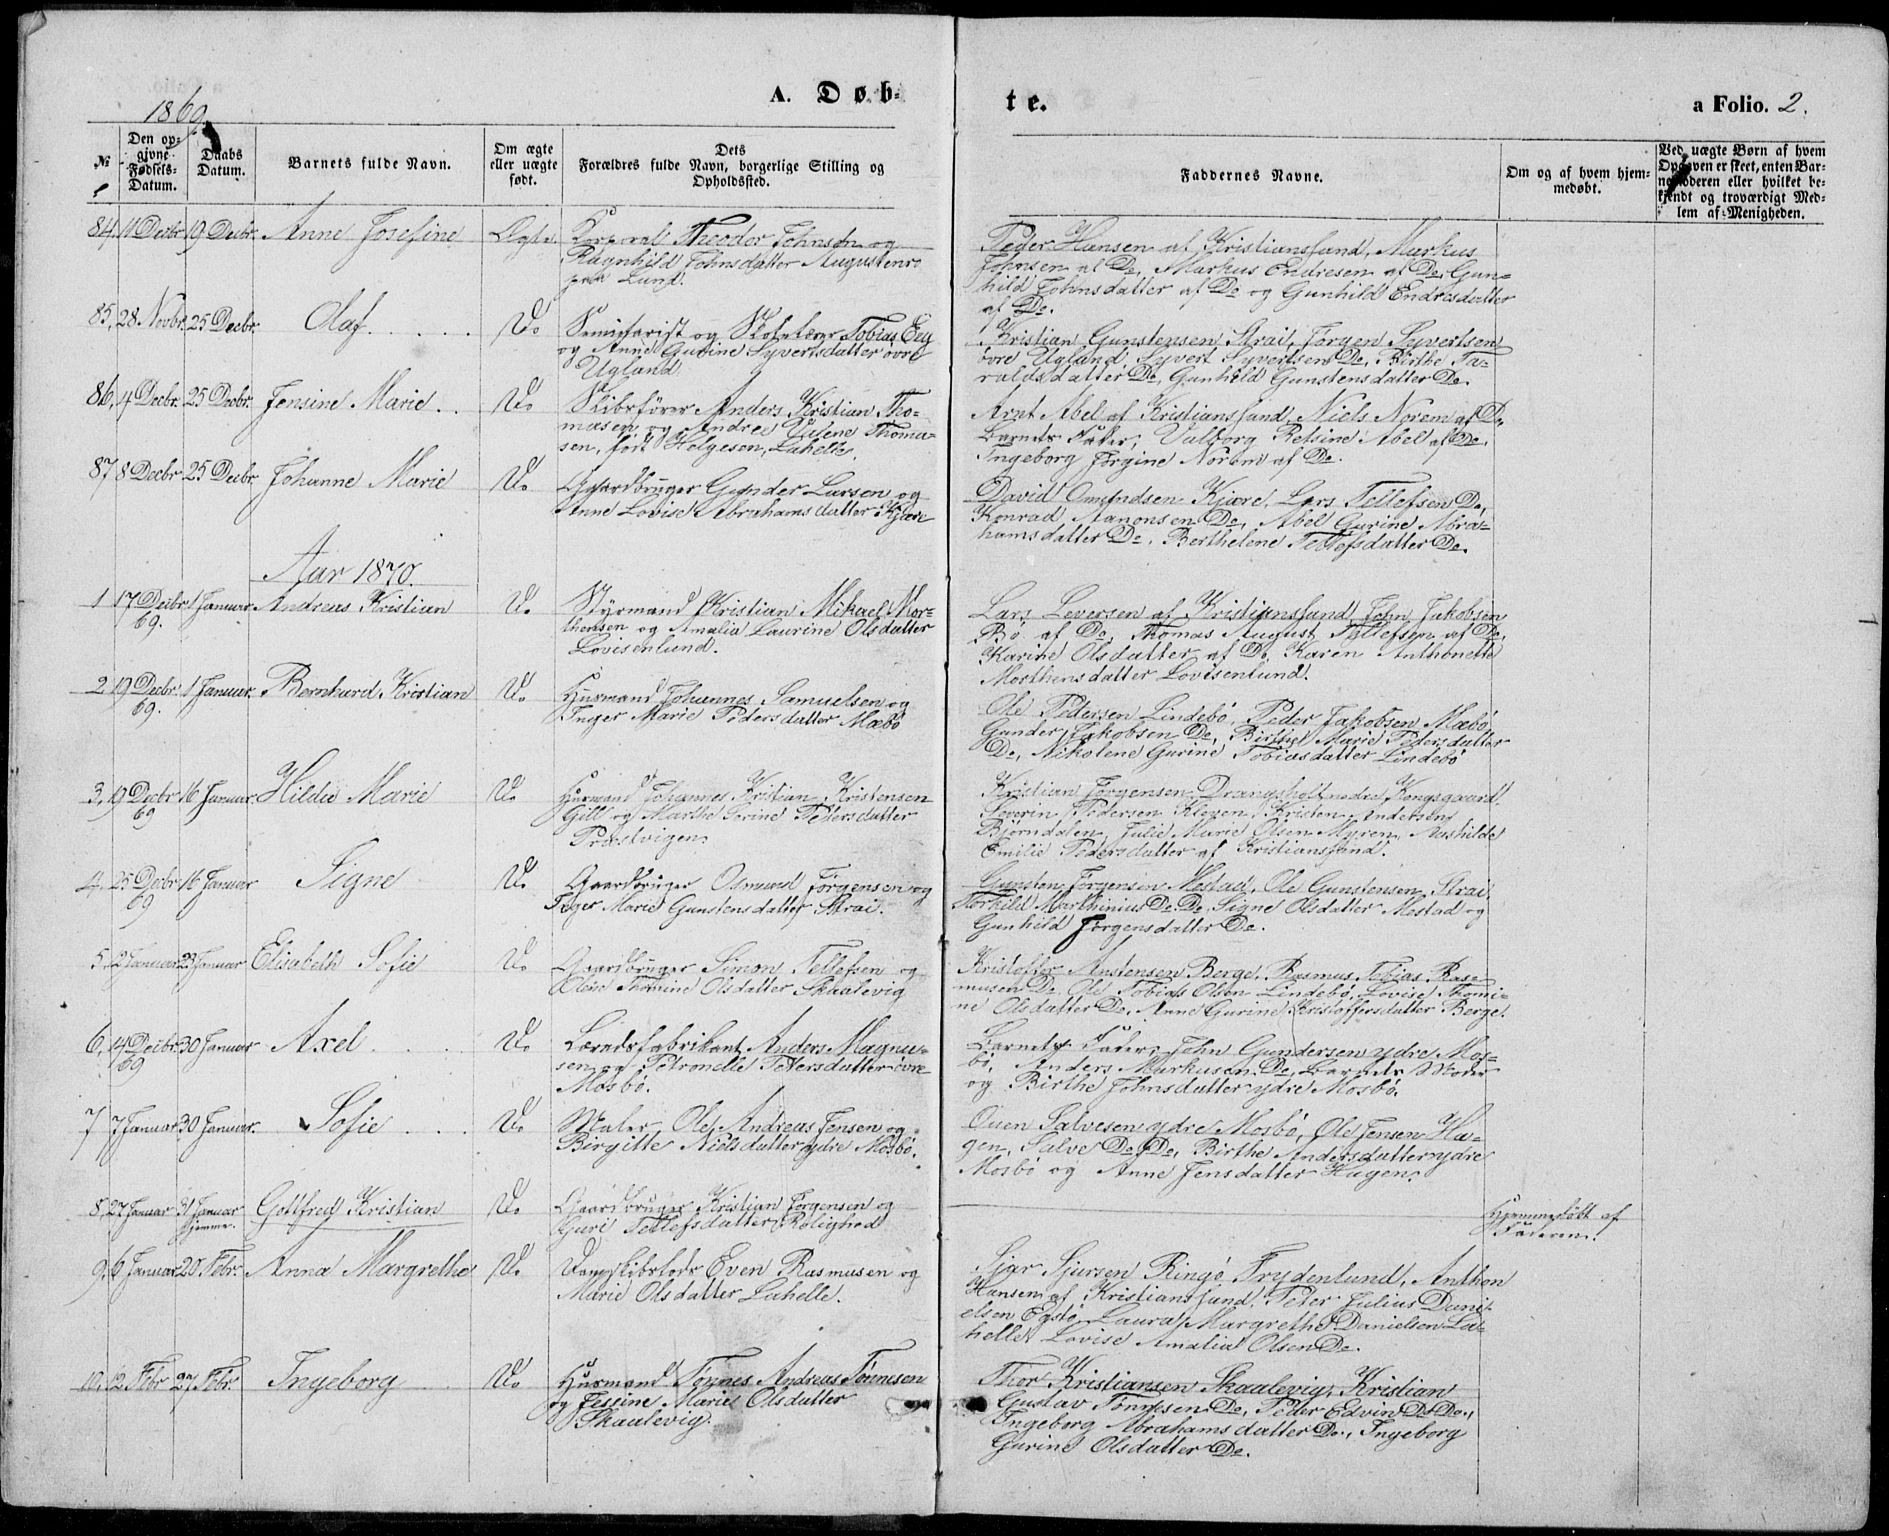 1869.
A. Døb-
te.
a Folio. 2.
№
Den op-
givne
Fødsels-
Datum.
Daabs
Datum.
Barnets fulde Navn.
Om ægte
eller uægte
født.
Dets
Forældres fulde Navn, borgerlige Stilling og
Opholdssted.
Faddernes Navne.
Om og af hvem hjem-
medøbt.
Ved uægte Børn af hvem
Opgaven er skeet, enten Bar-
nemoderen eller hvilket be-
kjendt og troværdigt Med-
lem af Menigheden.
84, 11 Decbr. 19 Decbr. Anne Josefine Ægte. Korporal Theodor Johnsen og
Ragnhild Johnsdatter Augustenro
paa Lund.
Peder Hansen af Kristianssand, Markus
Johnsen af Do, Markus Endresen af Do, Gun-
hild Johnsdatter af Do og Gunhild Endresdatter
af Do.
85, 28 Novbr. 25 Decbr. Olaf Do Seminarist og Skolelærer Tobias Eeg
og Anne Gurine Syvertsdatter övre
Ugland.
Kristian Gunstensen Strai, Jørgen Syvertsen
övre Ugland, Syvert Syvertsen Do, Birthe Ta-
raldsdatter Do, Gunhild Gunstensdatter Do.
86, 4 Decbr. 25 Decbr. Jensine Marie Do Skibsförer Anders Kristian Tho-
masen og Andrea Thoma-
sen, født Helgesen, Lahelle.
Arnt Abel af Kristianssand, Niels Norem af Do
Barnets Fader, Valborg Retsine Abel af Do.
Ingeborg Jörgine Norem af Do.
87 8 Decbr 25 Decbr Johanne Marie Do Gaardbruger Gunder Larsen og
Anne Lovise Abrahamsdatter Kjære
David Omundsen Kjære, Lars Tellefsen Do,
Konrad Aanonsen Do, Abel Gurine Abra-
hamsdatter Do, Berthelene Tellefsdatter Do.
Aar 1870.
1 17 Decbr 69. 1 Januar. Andreas Kristian Do Styrmand Kristian Mikael Mor-
thensen og Amalia Laurine Olsdatter
Lovisenlund.
Lars Leversen af Kristianssand, John Jakobsen
Bö af Do, Thomas August Tellefsen af Do,
Karine Olsdatter af Do, Karen Anthonette
Morthensdatter Lovisenlund.
2 19 Decbr. 69. 1 Januar. Bernhard Kristian Do Husmand Johannes Samuelsen og
Inger Marie Pedersdatter Mæbö
Ole Pedersen Lindebö, Peder Jakobsen Mæbö
Gunder Jakobsen Do, Birthe Marie Pedersdatter
Do, Nikolene Gurine Tobiasdatter Lindebö
3, 19 Decbr 69 16 Januar. Hilda Marie Do Husmand Johannes Kristian Kristensen
Gill og Marthe Serine Pedersdatter
Præstvigen.
Kristian Jørgensen Drangsholt nedre, Kongsgaard.
Severin Pedersen Kleven, Kristen Andersen
Bjørndalen, Julie Marie Olsen Myren, Mathilde
Emilie Pedersdatter af Kristianssand.
4, 25 Decbr 69 16 Januar Signe Do Gaardbruger Osmund Jörgensen og
Inger Marie Gunstensdatter Strai.
Gunsten Jörgensen Mestad, Ole Gunstensen Strai,
Thorkild Marthinius Do Do, Signe Olsdatter Mestad og
Gunhild Jörgensdatter Do.
5, 12 Januar 23 Januar Elisabeth Sofie Do Gaardbruger Simon Tellefsen og
Thomine Olsdatter Skaalevig
Kristoffer Anstensen Berge, Rasmus Tobias Ras-
musen Do, Ole Tobias Olsen Lindebö, Lovise Thomi-
ne Olsdatter Do, Anne Gurine Kristoffersdatter Berge.
6, 14 Decbr. 69 30 Januar Axel Do Lærredsfabrikant Anders Magnu-
sen og Petronelle Petersdatter övre
Mosbö.
Barnets Fader, John Gundersen ydre Mos-
bö, Anders Markusen Do, Barnets Moder
og Birthe Johnsdatter ydre Mosbö.
7 7 Januar 30 Januar. Sofie Do Maler Ole Andreas Jensen og
Birgitte Nielsdatter ydre Mosbö.
Ouen Salvesen ydre Mosbö, Ole Jensen Ha-
gen, Salve Do Do, Birthe Andersdatter ydre
Mosbö og Anne Jensdatter Hagen.
8, 27 Januar 31 Januar hjemme. Gottfred Kristian Do Gaardbruger Kristian Jörgensen og
Guri Tellefsdatter Rolighed
Hjemmedöbt af
Faderen.
9, 6 Januar 20 Febr. Anna Margrethe Do Even Rasmusen og
Marie Olsdatter Lahelle.
Sjur Sjursen Ringö Frydenlund, Anthon
Hansen af Kristianssand, Peder Julius Dani-
elsen Egstö, Laura Margrethe Danielsen La-
helle, Lovise Amalia Olsen Do.
10, 12 Febr 27 Febr. Ingeborg Do Husmand Tönnes Andreas Tönnesen
og Jessine Marie Olsdatter
Skaalevig.
Thor Kristiansen Skaalevig, Kristian
Gustav Tönnesen Do, Peder Edvin Do Do,
Ingeborg Abrahamsdatter Do, Ingeborg
Gurine Olsdatter Do.